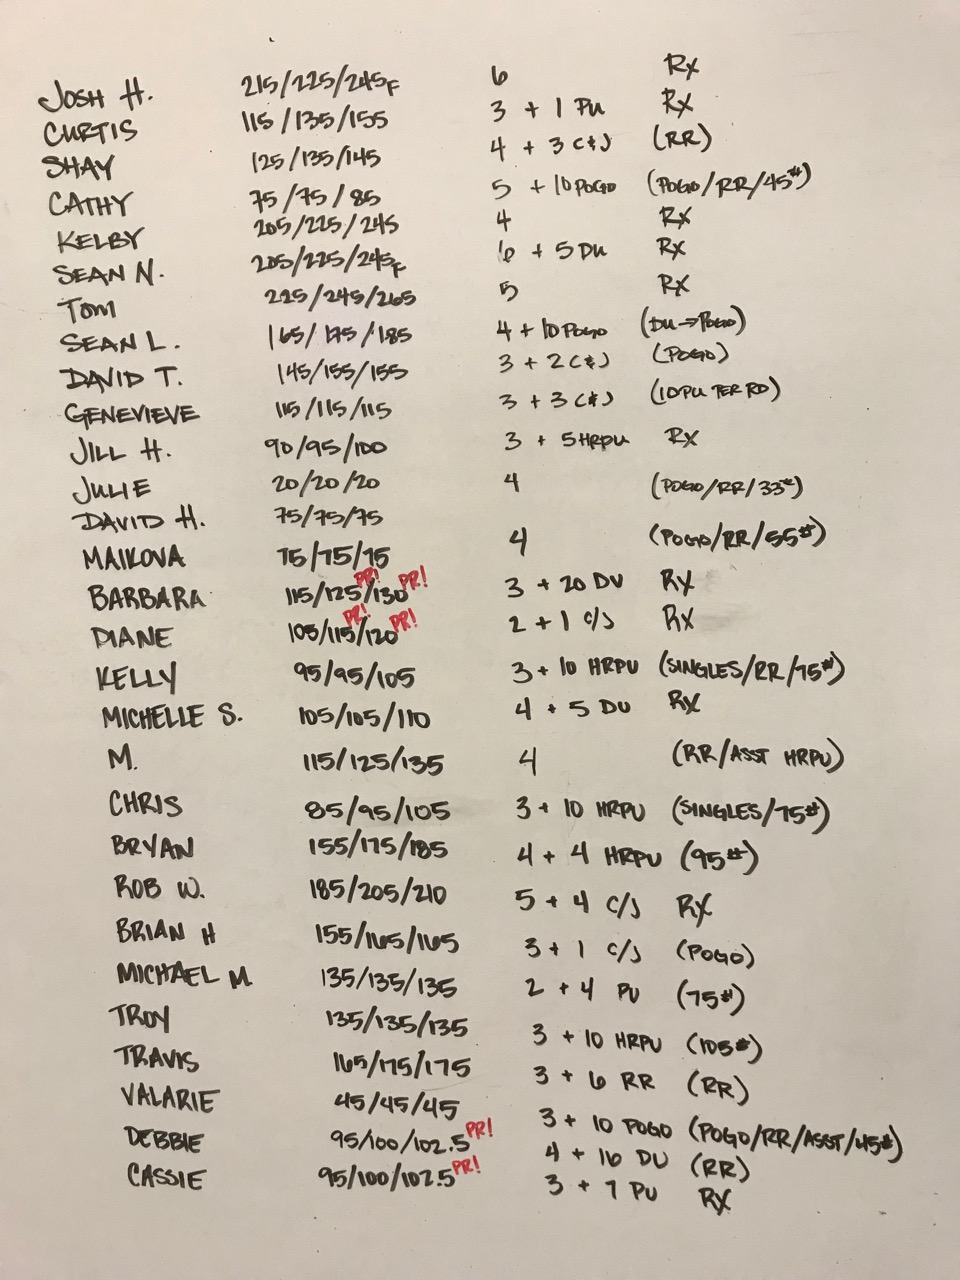 JOSH H. 215/225/245F 6 Rx
CURTIS 115/135/155 3 + 1 PU Rx
SHAY 125/135/145 4 + 3 C&J (RR)
CATHY 75/75/85 5 + 10 POGO (POGO/RR/45#)
KELBY 205/225/245 4 Rx
SEAN N. 205/225/245F 6 + 5 DU Rx
TOM 225/245/265 5 Rx
SEAN L. 165/175/185 4 + 10 POGO (DU→POGO)
DAVID T. 145/155/155 3 + 2 C&J (POGO)
GENEVIEVE 115/115/115 3 + 3 C&J (10PU PER RD)
JILL H. 90/95/100 3 + 5 HRPU Rx
JULIE 20/20/20 4 (POGO/RR/33#)
DAVID H. 75/75/75
MAIKOVA 75/75/75 4 (POGO/RR/55#)
BARBARA 115/125PR!/130PR! 3 + 20 DU Rx
DIANE 105/115PR!/120PR! 2 + 1 C/J Rx
KELLY 95/95/105 3 + 10 HRPU (SINGLES/RR/75#)
MICHELLE S. 105/105/110 4 + 5 DU Rx
M. 115/125/135 4 (RR/ASST HRPU)
CHRIS 85/95/105 3 + 10 HRPU (SINGLES/75#)
BRYAN 155/175/185 4 + 4 HRPU (95#)
ROB W. 185/205/210 5 + 4 C/J Rx
BRIAN H 155/165/165 3 + 1 C/J (POGO)
MICHAEL M. 135/135/135 2 + 4 PU (75#)
TROY 135/135/135 3 + 10 HRPU (105#)
TRAVIS 165/175/175 3 + 6 RR (RR)
VALARIE 45/45/45 3 + 10 POGO (POGO/RR/ASST/45#)
DEBBIE 95/100/102.5 PR! 4 + 16 DU (RR)
CASSIE 95/100/102.5 PR! 3 + 7 PU Rx